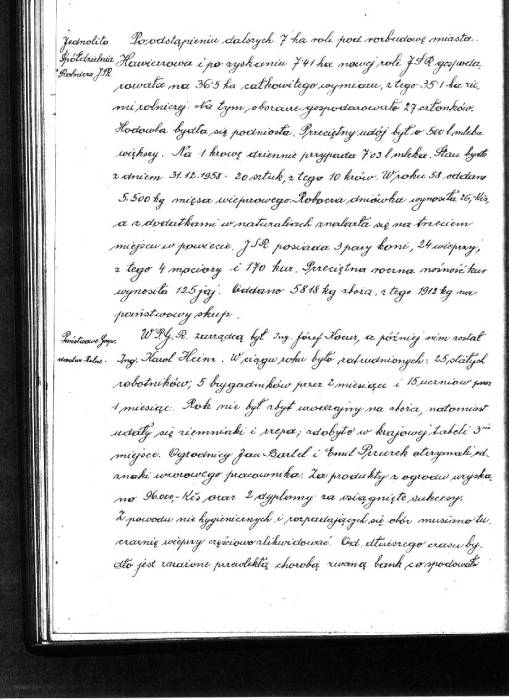 Jednolita
Spółdzielnia
Rolnicza J.S.R.
Po odstąpieniu dalszych 7 ha roli pod rozbudowę miasta
Hawierzowa i po zyskaniu 7·41 ha nowej roli J.S.R. gospoda
rowała na 36·5 ha całkowitego wymiaru, z tego 35·1 ha zie
mi rolniczej. Na tym obszarze gospodarowało 27 członków.
Hodowla bydła się podniosła. Przeciętny udój był o 500 l mleka
większy. Na 1 krowę dziennie przypada 7·03 l mleka. Stan bydła
z dniem 31.12.1958 - 20 sztuk, z tego 10 krów. W roku 58. oddano
5.500 kg mięsa wieprzowego. Robocza dniówka wynosiła 25,- Kčs,
a z dodatkami w naturaliach znalazła się na trzeciem
miejscu w powiecie. J.S.R. posiada 3 pary koni, 24 wieprzy,
z tego 4 maciory i 170 kur. Przeciętna roczna nośność kur
wynosiła 125 jaj. Oddano 5818 kg zboża, z tego 1912 kg na
państwowy skup.
Państwowe Gosp.
W P.G.R. zarządcą był Ing. Józef Kocur, a później nim został
Ing. Karol Heinz. W ciągu roku było zatrudnionych: 25 stałych
robotników, 5 brygadników przez 2 miesiące i 15 uczniów przez
1 miesiąc. Rok nie był zbyt urodzajny na zboża, natomiast
udały się ziemniaki i rzepa; zdobyto w krajowej tabeli 3cie
miejsce. Ogrodnicy Jan Bartel i Emil otrzymali od-
znaki wzorowego pracownika. Za produkty z ogrodu uzyska
no 96.000,- Kčs oraz 2 dyplomy za osiągnięte sukcesy.
Z powodu nie hygienicznych i rozpadających się obór musiano tu
czarnię wieprzy częściowo zlikwidować. Od dłuższego czasu by-
dło jest zarażone przewlekłą chorobą zwaną bank, co spodowało